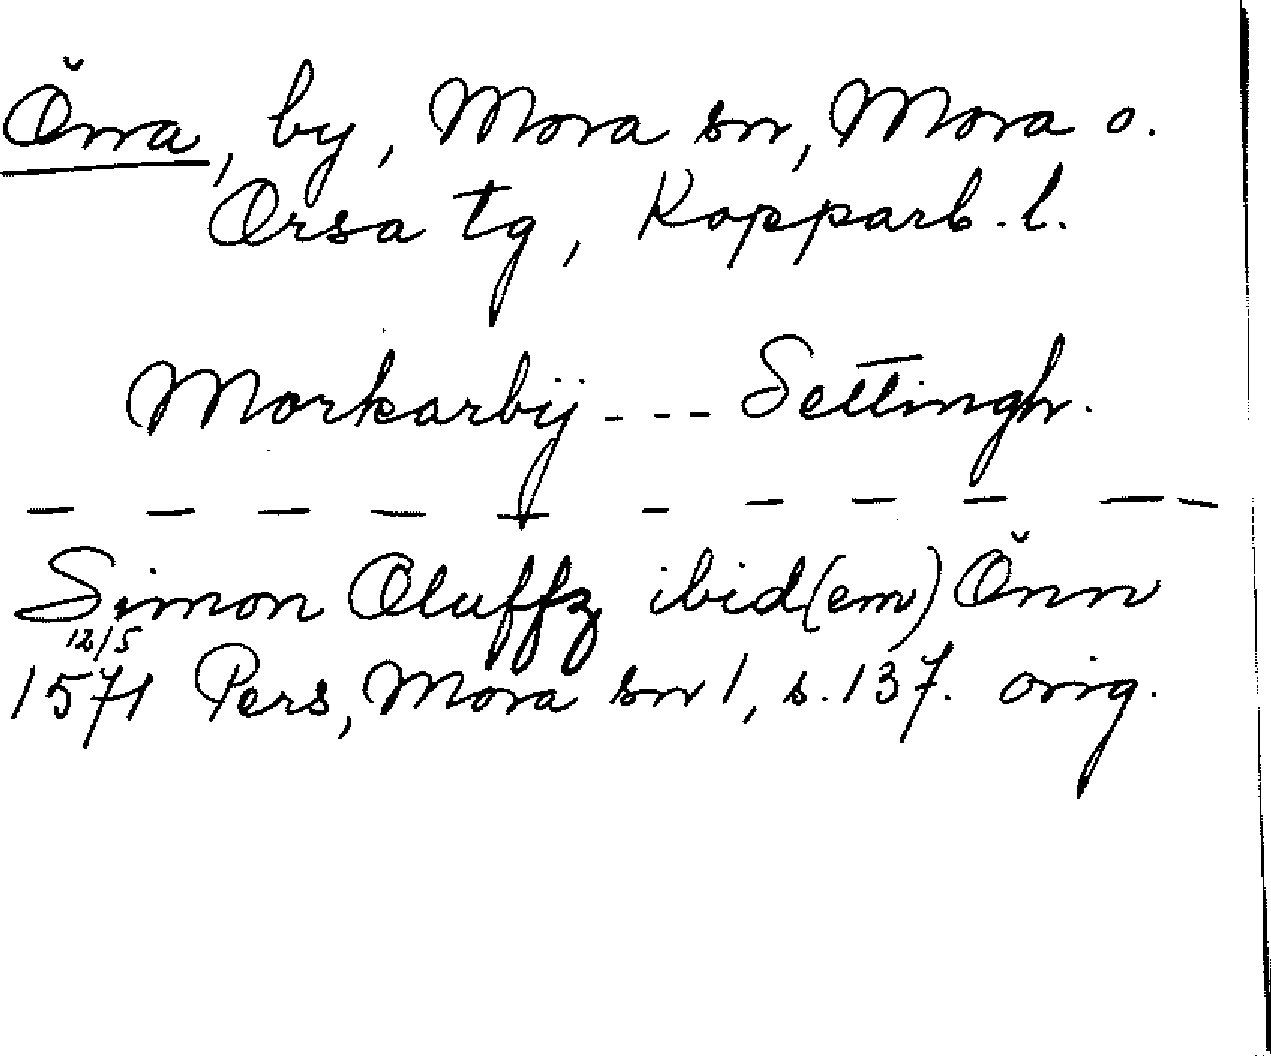 Önna, by, Mora sn, Mora o.
Orsa tg, Kopparb. l.
Morkarbÿ - - - Settingh.
— — — — — — — — — — —
Simon Oluffz ibid(em) Önn
12/5
1571 Pers, Mora sn 1, s. 137. orig.